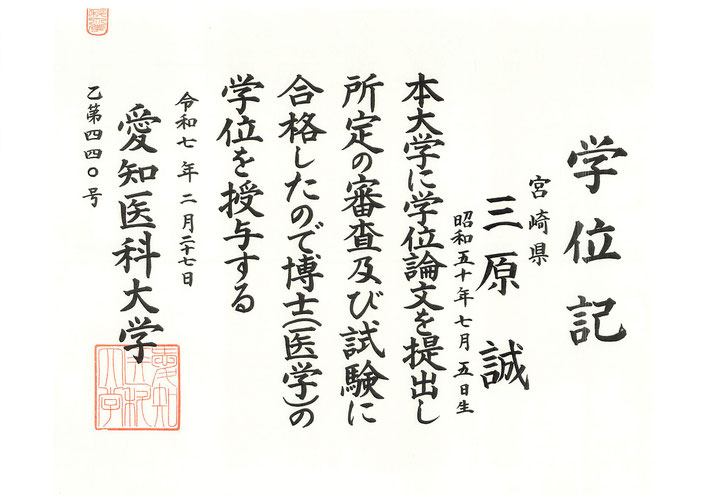 学位記
宮崎県
三原 誠
昭和五十年七月五日生
本大学に学位論文を提出し
所定の審査及び試験に
合格したので博士(医学)の
学位を授与する
令和七年二月二十七日
愛知医科大学
乙第四四〇号
愛知
医科
大学